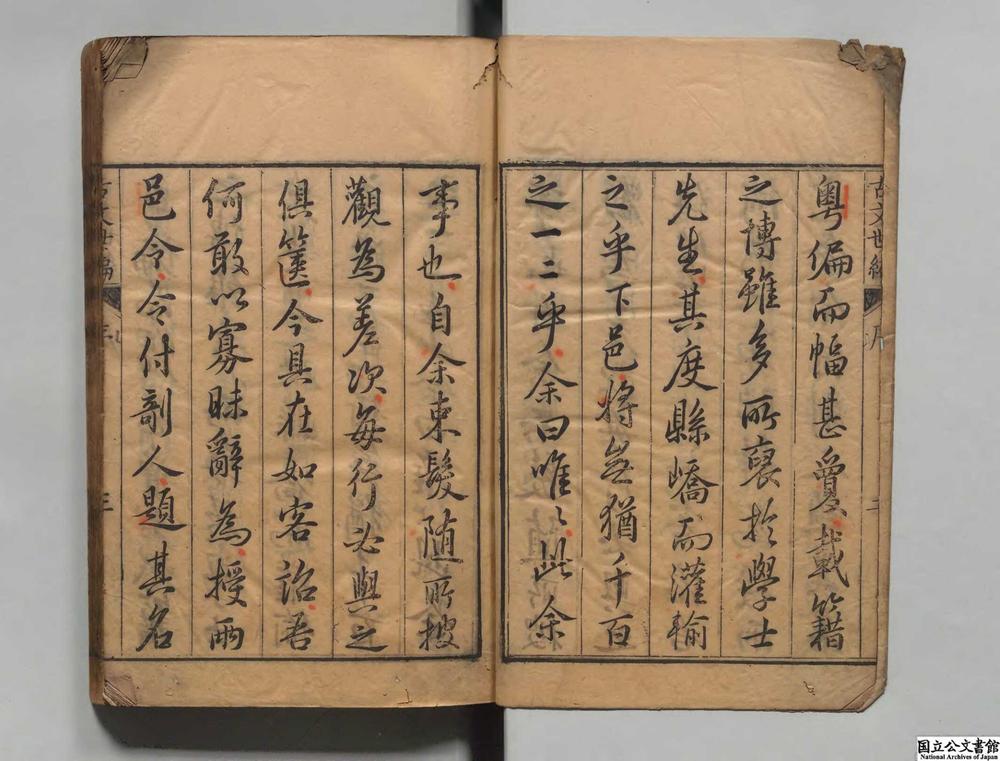 粤偏而幅甚夐載籍
之博雖多所裒於學士
先生其度縣嶠而灌輸
之乎下邑將無猶千百
之一二乎余曰唯〻此余
事也自余束髮随所搜
觀為差次每行必與之
俱箧今具在如客詒吾
何敢以寡昧辭為授兩
邑令令付剞人題其名
古文世編
序
古文世編
序
三
国立公文書館
National Archives of Japan